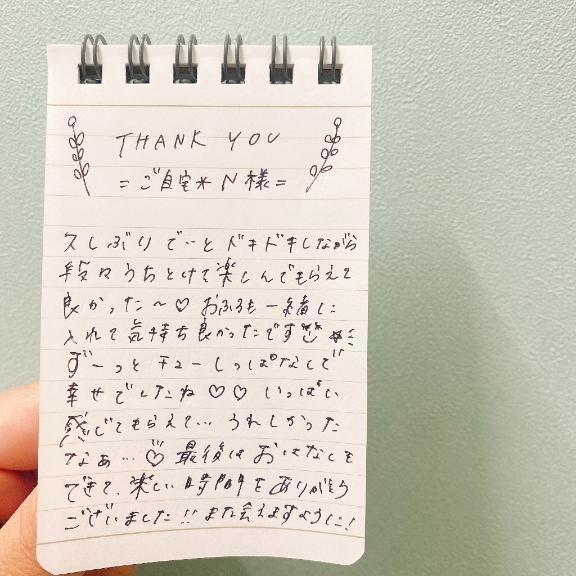 THANK YOU
=ご自宅*N様=
久しぶりでいとドキドキしながら
段々うちとけて楽しんでもらえて
良かった〜♡ おふろも一緒に
入れて気持ち良かったです
ずーっとチューしっぱなしで
幸せでしたね♡♡ いっぱい
感じてもらえて… うれしかった
なぁ…♡ 最後はおはなしも
できて、楽しい時間をありがとう
ございました!! また会えますように!